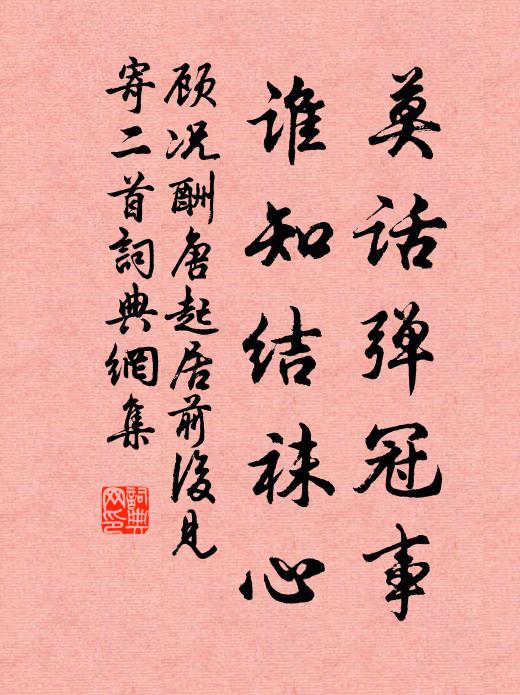 莫话弹冠事
谁知结袜心
顾况酬唐起居前後见
寄二首詞典網集
詞典
网印